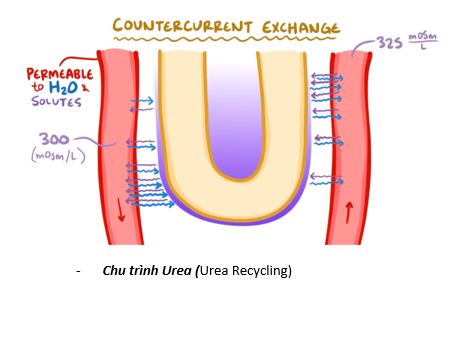 COUNTERCURRENT EXCHANGE
325 mOSm/L
PERMEABLE
to H₂O &
SOLUTES
300
(mOSm/L)
- Chu trình Urea (Urea Recycling)